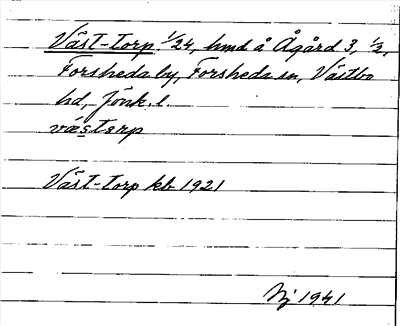 Väst-Torp 1/24, hmd å Ågård 3, 1/2,
Forsheda by, Forsheda sn, Västbo
hd, Jönk. l.
væstɔrp
Väst-Torp kb 1921
Nj 1941